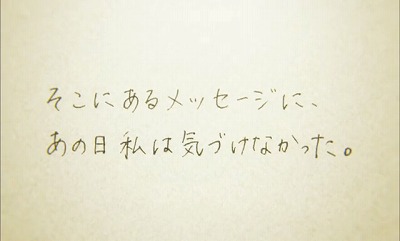 そこにあるメッセージに、
あの日私は気づけなかった。